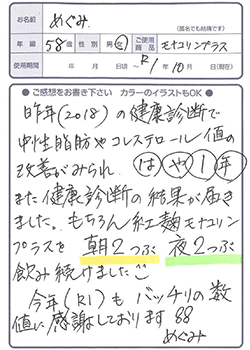 お名前 めぐみ (匿名でも結構です)
年齢 58歳 性別 男・女 ご使用商品 モナコリンプラス
使用期間 年 月 日頃 ～ R1年 10月 日(現在)
●ご感想をお書き下さい カラーのイラストもOK●
昨年(2018)の健康診断で
中性脂肪やコレステロール値の
改善がみられ はや1年
また健康診断の結果が届き
ました。もちろん紅麹モナコリン
プラスを 朝2つぶ 夜2つぶ
飲み続けました
今年(R1)も バッチリの数
値に感謝しております
めぐみ